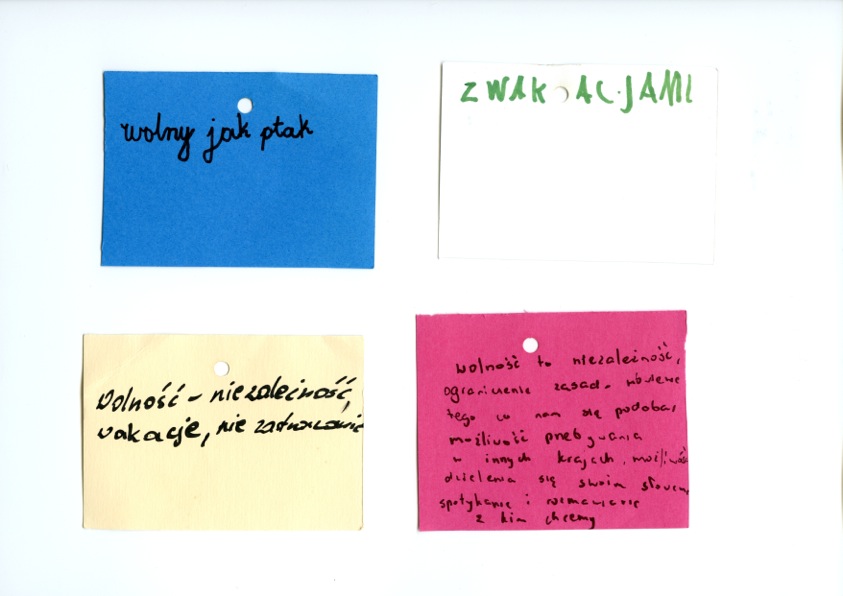 wolny jak ptak
Z WAKACJAMI
Wolność - niezależność,
wakacje, nie
wolność to niezależność,
ograniczenie zasad - mówienie
tego co nam się podoba,
możliwość przebywania
w innych krajach, możliwość
dzielenia się swoim słowem
spotykanie i rozmawianie
z kim chcemy